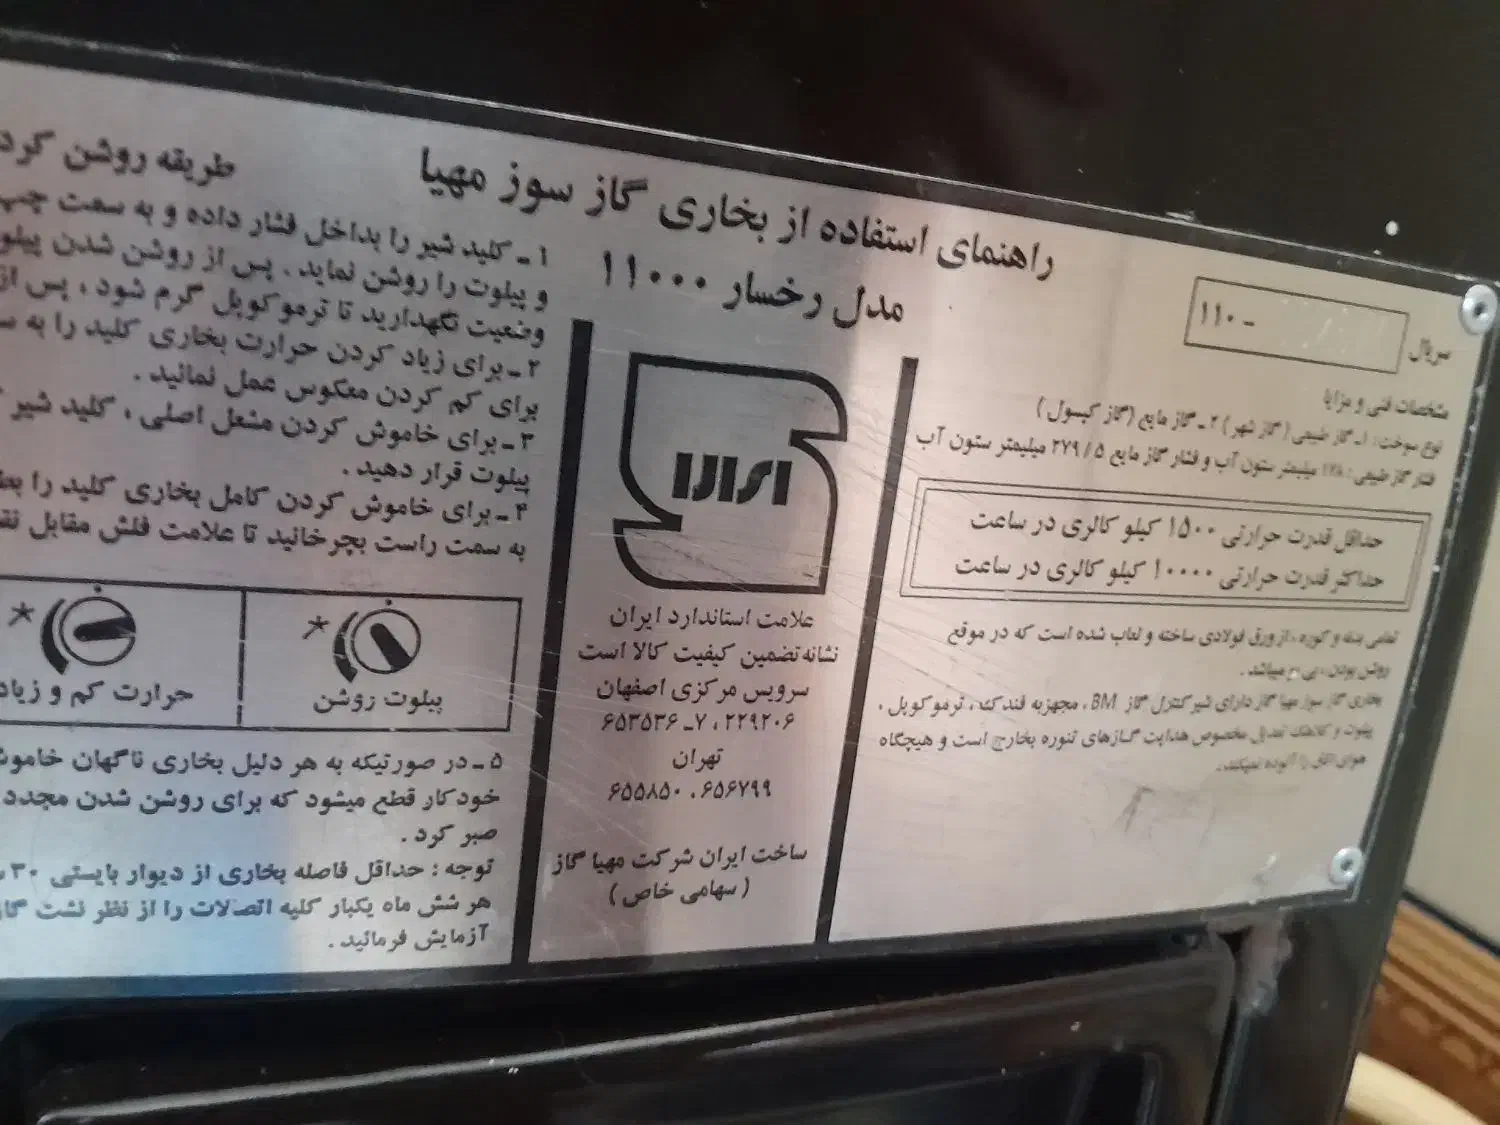 راهنمای استفاده از بخاری گاز سوز مهیا
مدل رخسار ۱۱۰۰۰
سریال
۱۱۰ -
مشخصات فنی و مزایا
نوع سوخت: ۱ـ گاز طبیعی (گاز شهر) ۲ـ گاز مایع (گاز کپسول)
فشار گاز طبیعی: ۱۷۸ میلیمتر ستون آب و فشار گاز مایع ۲۷۹/۵ میلیمتر ستون آب
حداقل قدرت حرارتی ۱۵۰۰ کیلو کالری در ساعت
حداکثر قدرت حرارتی ۱۰۰۰۰ کیلو کالری در ساعت
تمامی بدنه و کوره، از ورق فولادی ساخته و لعاب شده است که در موقع
روشن بودن، بی میباشد.
بخاری گاز سوز مهیا گاز دارای شیر کنترل گاز BM، مجهز به فندک، ترموکوپل،
پیلوت و کلاهک تعدیل مخصوص هدایت گازهای تنوره بخارج است و هیچگاه
هوای اتاق را آلوده نمیکند.
ایران
علامت استاندارد ایران
نشانه تضمین کیفیت کالا است
سرویس مرکزی اصفهان
۲۲۹۲۰۶، ۷ـ ۶۵۳۵۳۶
تهران
۶۵۶۷۹۹، ۶۵۵۸۵۰
ساخت ایران شرکت مهیا گاز
(سهامی خاص)
طریقه روشن کرد
۱ـ کلید شیر را بداخل فشار داده و به سمت چپ
و پیلوت را روشن نماید. پس از روشن شدن پیلو
وضعیت نگهدارید تا ترموکوپل گرم شود، پس از
۲ـ برای زیاد کردن حرارت بخاری کلید را به س
برای کم کردن معکوس عمل نمائید.
۳ـ برای خاموش کردن مشعل اصلی، کلید شیر
پیلوت قرار دهید.
۴ـ برای خاموش کردن کامل بخاری کلید را بط
به سمت راست بچرخانید تا علامت فلش مقابل نق
پیلوت روشن
حرارت کم و زیاد
۵ـ در صورتیکه به هر دلیل بخاری ناگهان خاموش
خودکار قطع میشود که برای روشن شدن مجدد
صبر کرد.
توجه: حداقل فاصله بخاری از دیوار بایستی ۳۰
هر شش ماه یکبار کلیه اتصالات را از نظر نشت گاز
آزمایش فرمائید.